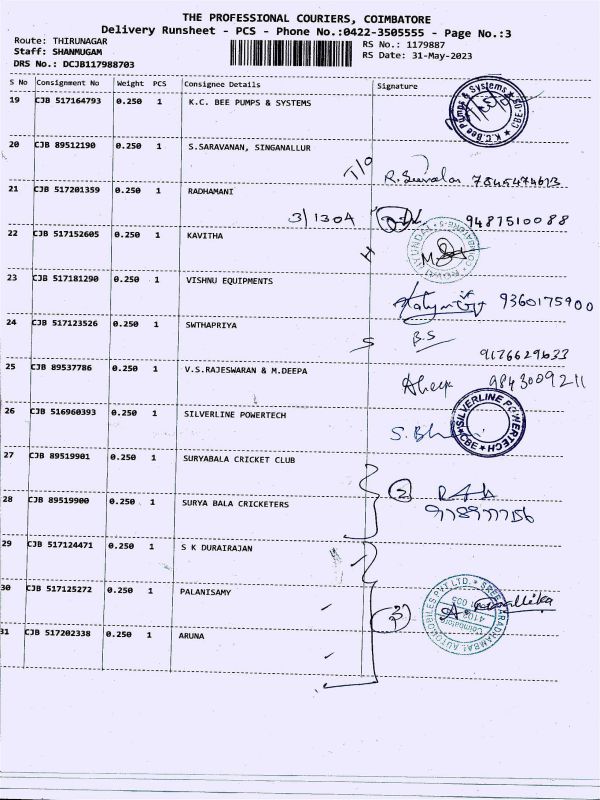 THE PROFESSIONAL COURIERS, COIMBATORE
Delivery Runsheet - PCS - Phone No.:0422-3505555 - Page No.:3
Route: THIRUNAGAR
RS No.: 1179887
Staff: SHANMUGAM
RS Date: 31-May-2023
DRS No.: DCJB117988703
S No Consignment No Weight PCS Consignee Details Signature
19 CJB 517164793 0.250 1 K.C. BEE PUMPS & SYSTEMS
K.C. Bee Pumps & Systems CBE-05
20 CJB 89512190 0.250 1 S.SARAVANAN, SINGANALLUR
T/O
R.
21 CJB 517201359 0.250 1 RADHAMANI
3/1304 9487510088
22 CJB 517152605 0.250 1 KAVITHA
H
23 CJB 517181290 0.250 1 VISHNU EQUIPMENTS
9360175900
24 CJB 517123526 0.250 1 SWTHAPRIYA
S B.S
9176629633
25 CJB 89537786 0.250 1 V.S.RAJESWARAN & M.DEEPA
9843009211
26 CJB 516960393 0.250 1 SILVERLINE POWERTECH
SILVERLINE POWERTECH CBE
S.
27 CJB 89519901 0.250 1 SURYABALA CRICKET CLUB
2
28 CJB 89519900 0.250 1 SURYA BALA CRICKETERS
29 CJB 517124471 0.250 1 S K DURAIRAJAN
30 CJB 517125272 0.250 1 PALANISAMY
3
AUTOMOBILES PVT LTD.
31 CJB 517202338 0.250 1 ARUNA